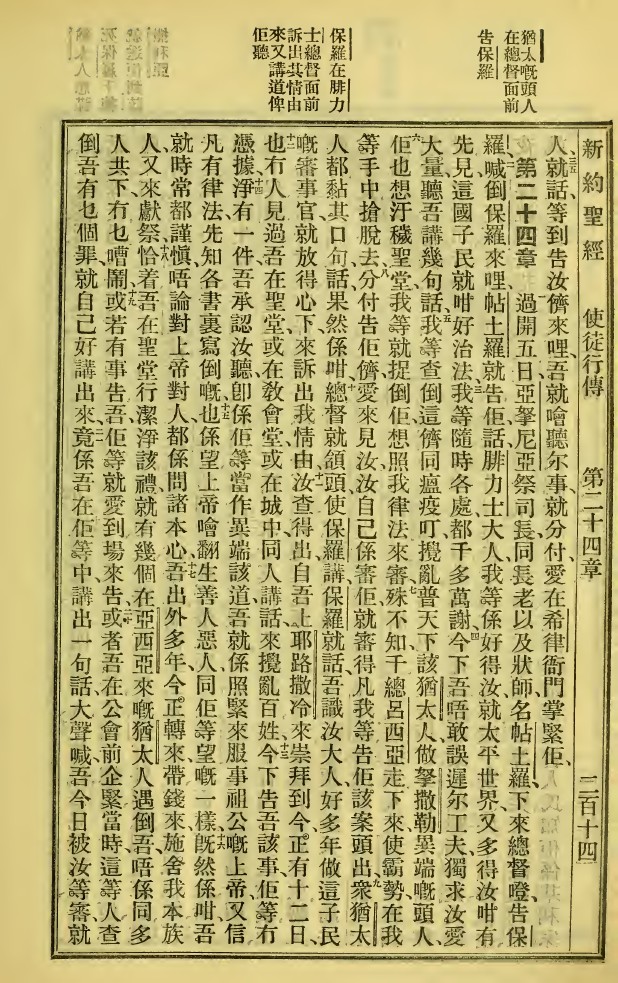 猶太嘅頭人
在總督面前
告保羅
保羅在腓力
士總督面前
訴出其情由
來又講道俾
佢聽
新約聖經 使徒行傳 第二十四章 二百十四
三五
人、就話、等到告汝儕來哩、吾就噲聽尔事、就分付愛在希律衙門掌緊佢、
第二十四章 一過開五日、亞拏尼亞祭司長、同長老、以及狀師名帖土羅、下來總督噔告保
羅、二喊倒保羅來哩、帖土羅就告佢話、腓力士大人、我等係好得汝就太平世界、又多得汝咁有
先見、這國子民就咁好治法、三我等隨時各處都千多萬謝、四今下吾唔敢誤遲尔工夫、獨求汝愛
大量聽吾講幾句話、五我等查倒這儕同瘟疫叮、攪亂普天下該猶太人、做拏撒勒異端嘅頭人、
六佢也想汙穢聖堂、我等就捉倒佢、想照我律法來審、七殊不知千總呂西亞走下來、使霸勢在我
等手中搶脫去、八分付告佢儕愛來見汝、汝自己係審佢、就審得凡我等告佢該案頭出、九衆猶太
人都黏其口句話、果然係咁、十總督就頷頭使保羅講、保羅就話、吾識汝大人、好多年做這子民
嘅審事官、就放得心下來訴出我情由、十一汝查得出自吾上耶路撒冷來崇拜到今、正有十二日、
十二也冇人見過吾在聖堂、或在敎會堂、或在城中、同人講話來攪亂百姓、十三今下告吾該事、佢等冇
憑據、十四淨有一件、吾承認汝聽、卽係佢等當作異端該道、吾就係照緊來服事祖公嘅上帝、又信
凡有律法先知各書裏寫倒嘅、十五也係望上帝噲翻生善人惡人、同佢等望嘅一樣、十六旣然係咁、吾
就時常都謹愼、唔論對上帝對人、都係問諸本心、十七吾出外多年、今正轉來、帶錢來施舍我本族
人、又來獻祭、十八恰着吾在聖堂行潔淨該禮、就有幾個在亞西亞來嘅猶太人遇倒吾、唔係同多
人共下、冇乜嘈鬧、十九或若有事告吾、佢等就愛到場來告、二十或者吾在公會前企緊當時、這等人查
倒吾有乜個罪、就自己好講出來、二一竟係吾在佢等中講出一句話、大聲喊、吾今日被汝等審、就